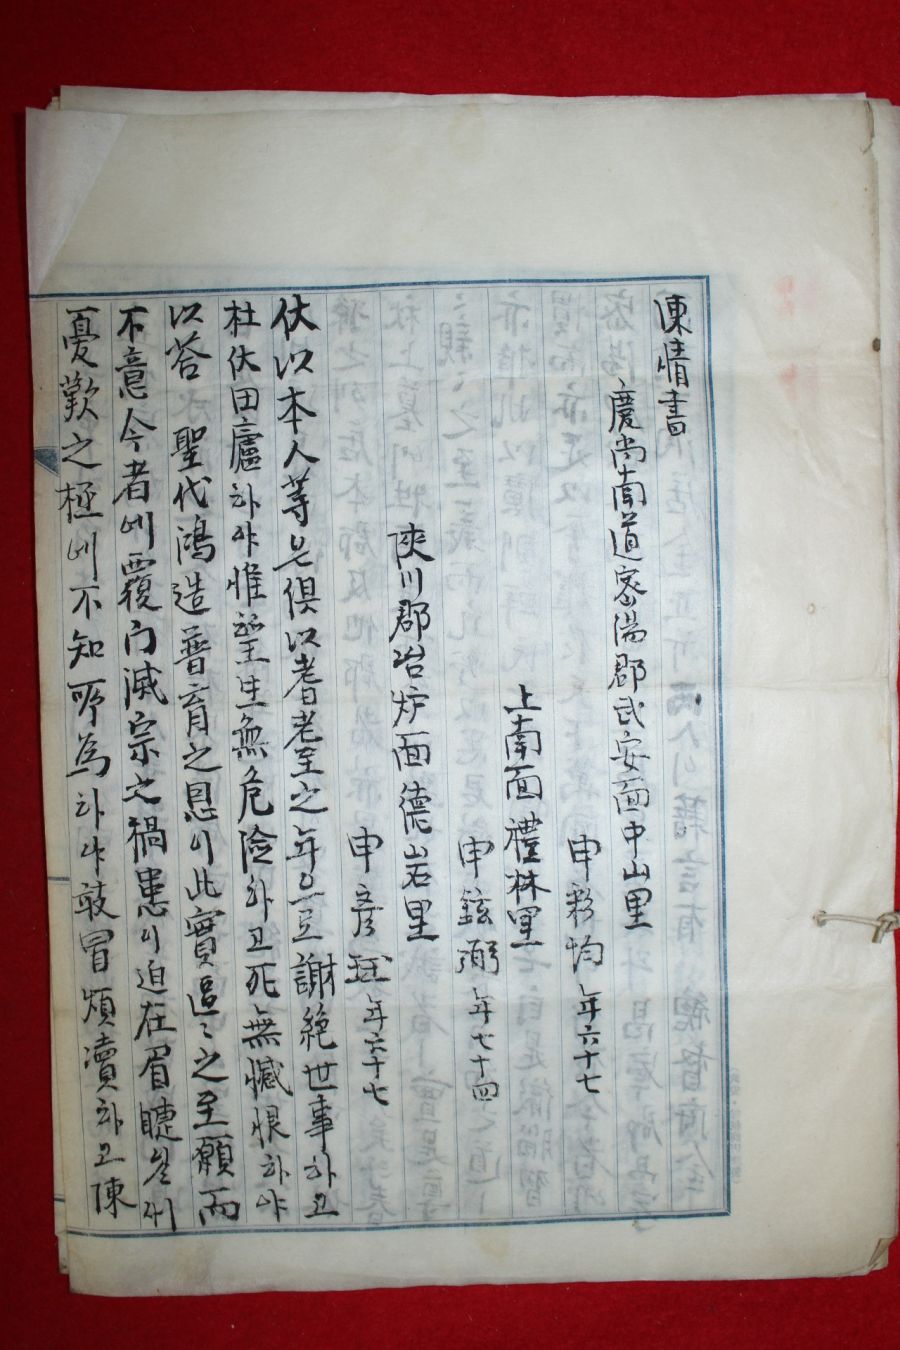 陳情書
慶尚南道密陽郡武安面中山里
申 均 年六十七
上南面禮林里
申鉉弼 年七十四
陜川郡冶炉面德岩里
申彦 年六十七
伏以本人等은俱以耆老至之年으로謝絶世事하고
杜伏田廬하야惟望生無危險하고死無憾恨하야
以答 聖代鴻造普育之恩이此實區〻之至願而
不意今者에覆门滅宗之禍患이迫在眉睫
憂歎之極에不知所為하야敢冒煩瀆하고陳